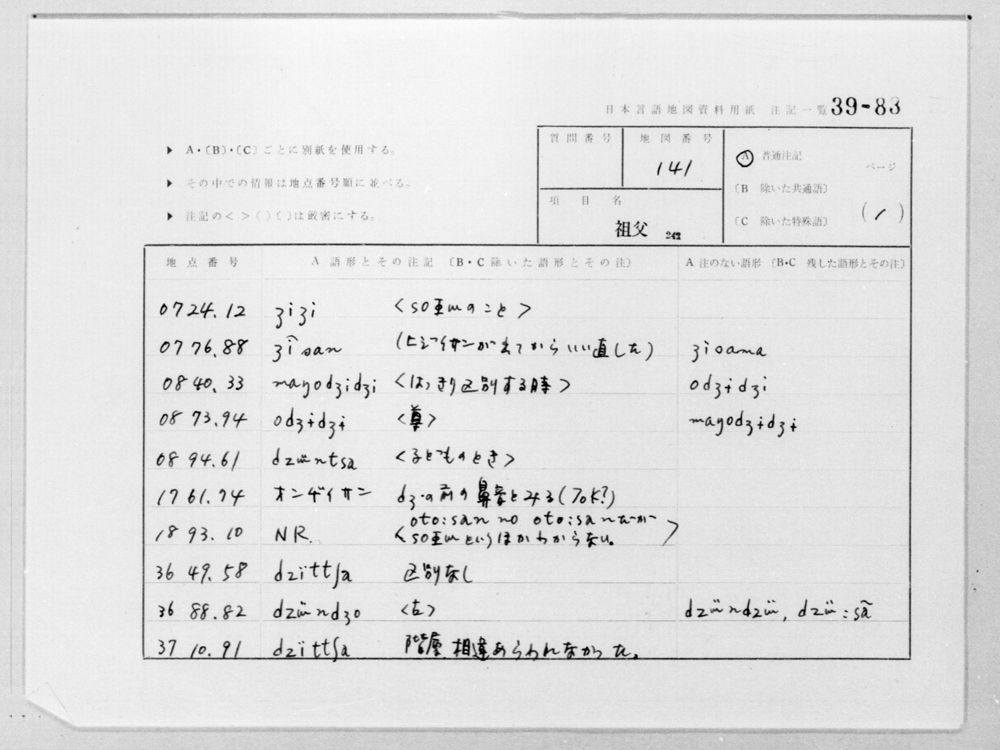 日本言語地図資料用紙 注記一覧 39-83
▶ A・〔B〕・〔C〕ごとに別紙を使用する。
▶ その中での情報は地点番号順に並べる。
▶ 注記の< >( )〔 〕は厳密にする。
質問番号
地図番号
141
項目名
祖父 242
Ⓐ 普通注記
〔B 除いた共通語〕
〔C 除いた特殊語〕
ページ
(1)
地点番号 A 語形とその注記 〔B・C除いた語形とその注〕 A 注のない語形 〔B・C 残した語形とその注〕
0724.12 ʒiʒi <soɯのこと>
0776.88 ʒîsan (ヒジイサンが出てからいい直した) ʒisama
0840.33 magodʒidʒi <はっきり区別する時> odʒɨdʒi
0873.94 odʒɨdʒɨ <尊> magodʒɨdʒɨ
0894.61 dzɯ̈ntsa <子どものとき>
1761.74 オンヂイサン dʒの前の鼻音とみる(?)
1893.10 NR. <oto:san no oto:san
というほかわからない。>
3649.58 dzïttʃa 区別なし
3688.82 dzɯ̈ndʒo <古> dzɯ̈ndzɯ̈, dzɯ̈:sã
3710.91 dzïttʃa 階層相違あらわれなかった。